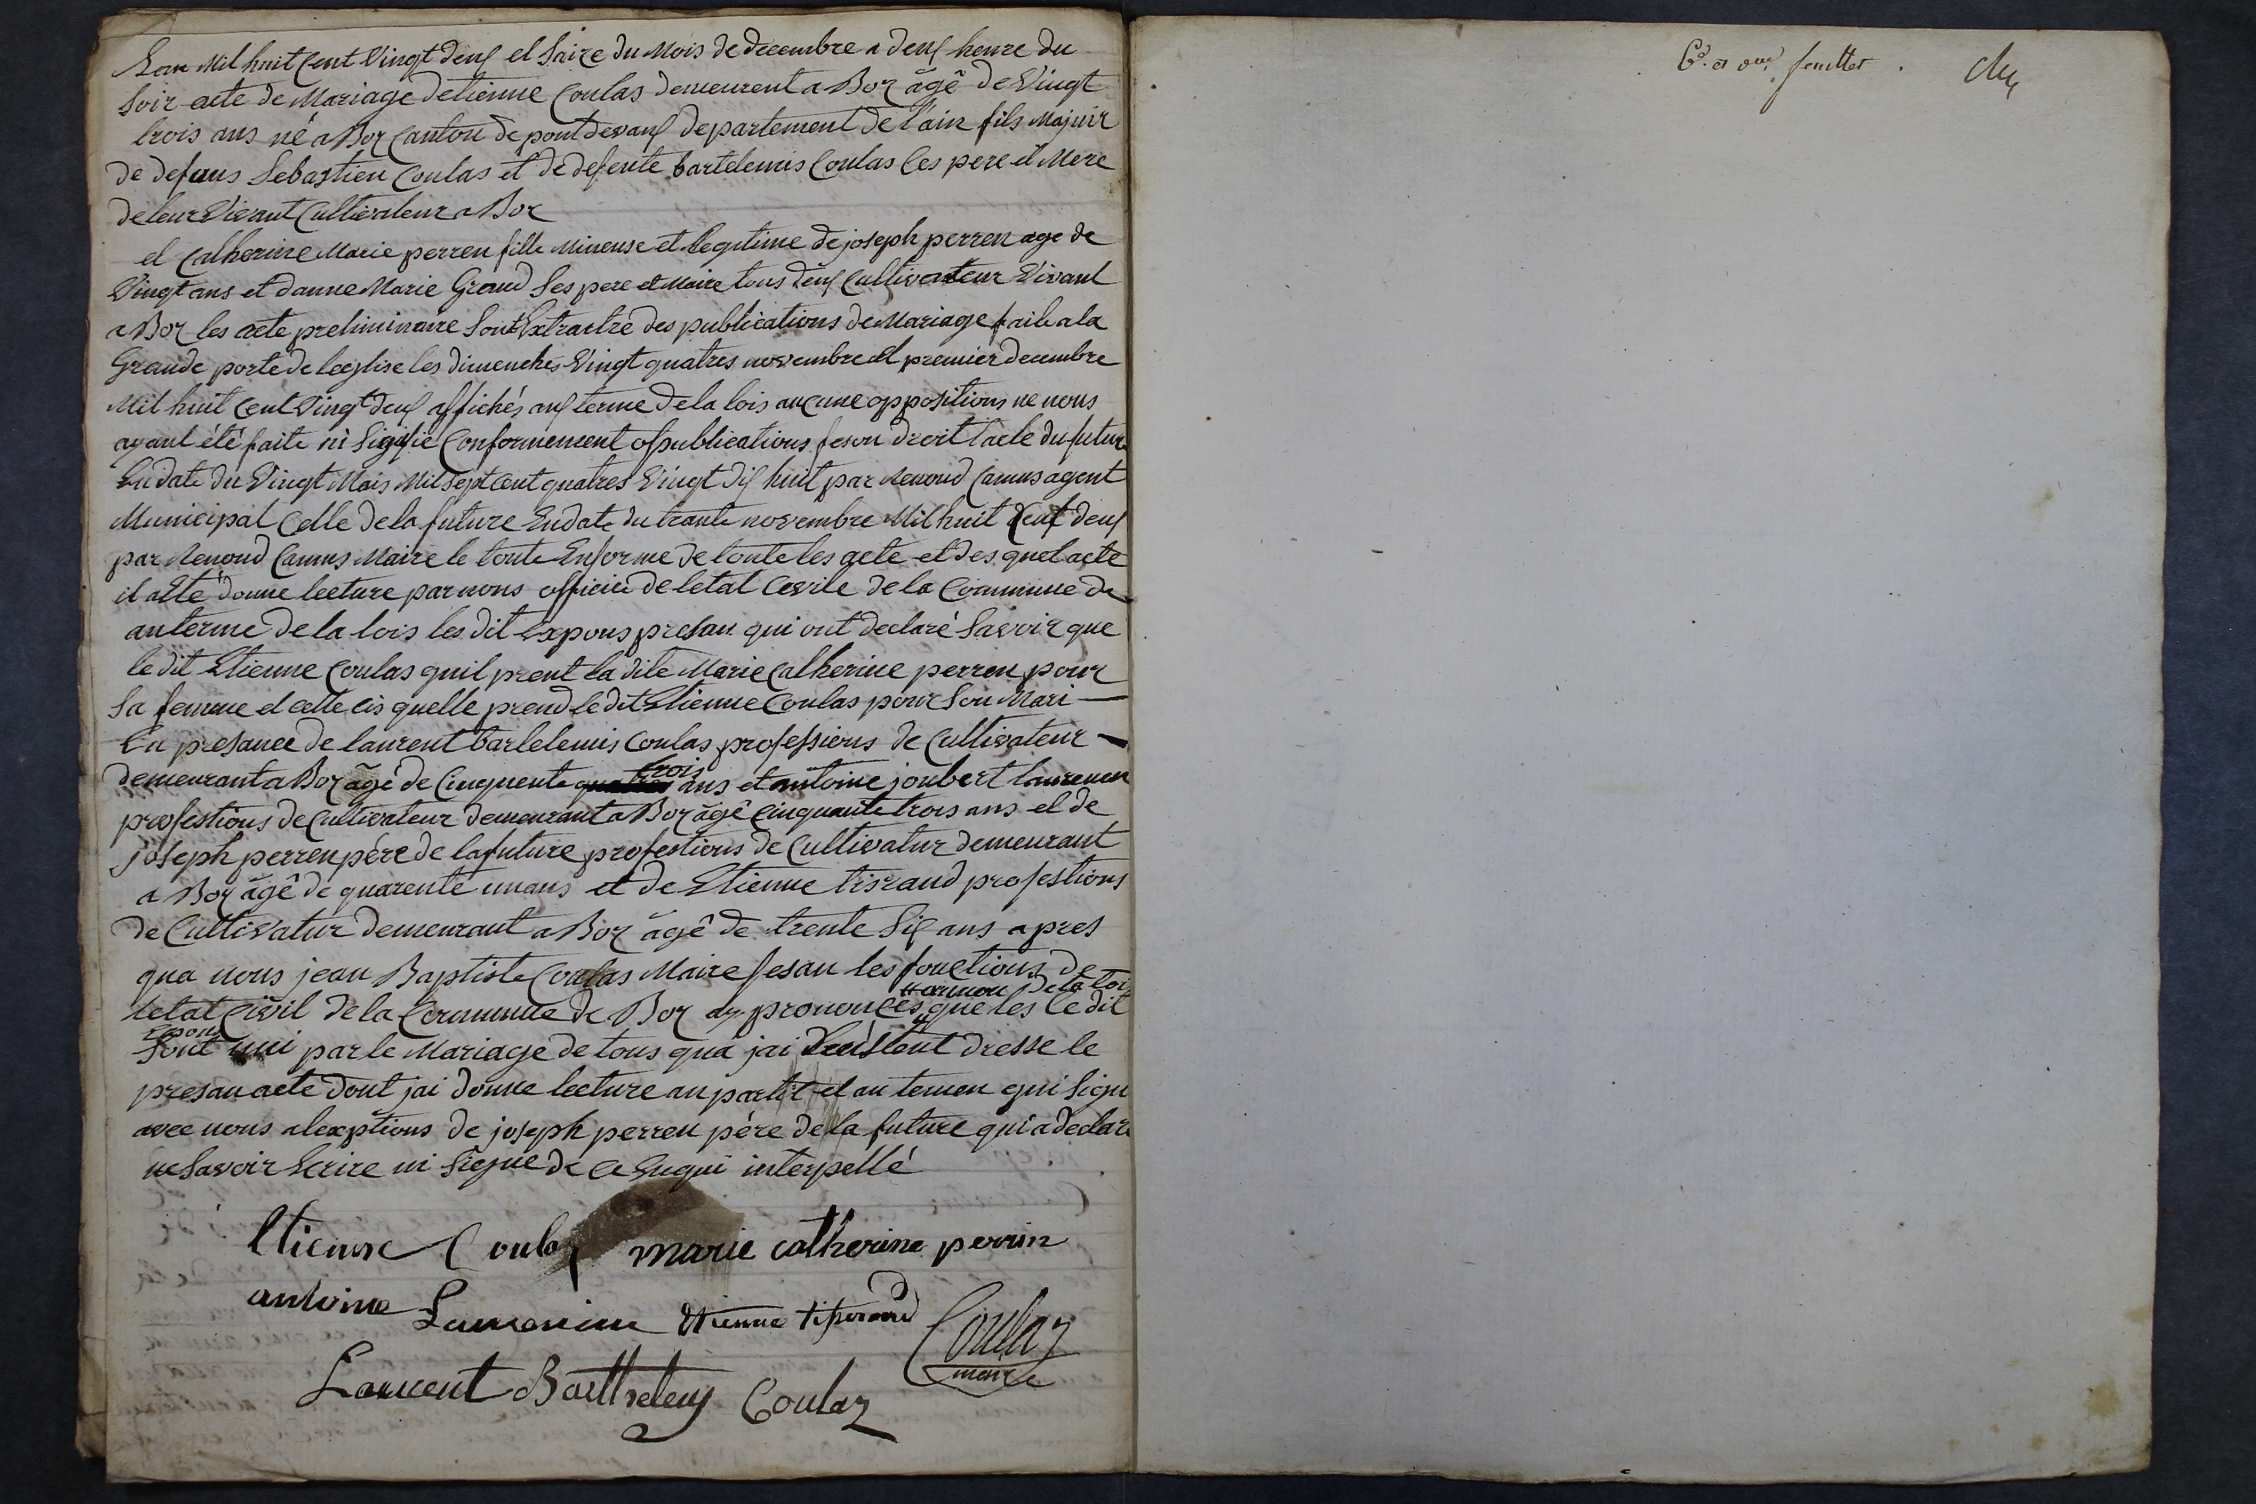 Lan Mil huit Cent Vingt deux et Saize du Mois de decembre a deux heure du
Soir acte de Mariage detienne Coulas demeurent a Boz âgê de Vingt
trois ans né a Boz Canton de pont devaux departement de l'ain fils Majuir
de defans Sebastien Coulas et de defente bartelemis Coulas Ces pere et Mere
de leur Vivant Cultivateur a Boz
et Catherine Marie perren fille Mineuse et legitime de joseph perren age de
Vingt ans et danne Marie Grand Ses pere et Maire tous deux Cultivateur Vivant
a Boz les acte preliminaire Sont Extraitre des publications de Mariage faite a la
Grande porte de leglise les dimenches Vingt quatres novembre et premier decembre
Mil huit Cent Vingt deux affichés aux terme de la lois aucune oppositions ne nous
ayant été faite ni Sigifie Conformement publications feson droit lacte du futur
En date du Vingt Mais Mil sept cent quatres Vingt dix huit par Renoud Camus agent
Municipal Celle de la future En date du trante novembre Mil huit Cent deux
par Renoud Camus Maire le toute Enforme de toute les acte et des quel acte
il a Eté donne lecture par nous officié de letat Cevile de la Commune de
au terme de la lois les dit Expous presan qui ont declaré Savoir que
le dit Etienne Coulas quil prent la dite Marie Catherine perren pour
Sa femme et cette cis quelle prend le dit Etienne Coulas pour Son Mari
En presance de laurent bartelemis Coulas professions de Cultivateur
trois
demeurant a Boz âgé de Cinquente ans et antoine joubert laurencin
profestions de Cultivateur demeurant a Boz âgê Cinquante trois ans et de
joseph perren pére de la future profestions de Cultivatur demeurant
a Boz âgê de quarente un ans et de Etienne tisraud profestions
de Cultivatur demeurant a Boz âgê de trente Six ans apres
qua nous jean Baptiste Coulas Maire fesan les fonctions de
au nom de la loi
letat Civil de la Commune de Boz prononcés que les Ce dit
Epoux
Sont uni par le Mariage de tous qua jai dresse le
presan acte dont jai donne lecture an partit et au temen qui Sign
avec nous alexptions de joseph perren pére de la future qui a declar
ne Savoir Ecrire ni Signé de Ce Enqui interpellé
Etienne Coulaz marie catherine perrin
antoine Laurencin Etienne tisseraud Coulaz
maire
Laurent Barthelemy Coulaz
feuillet